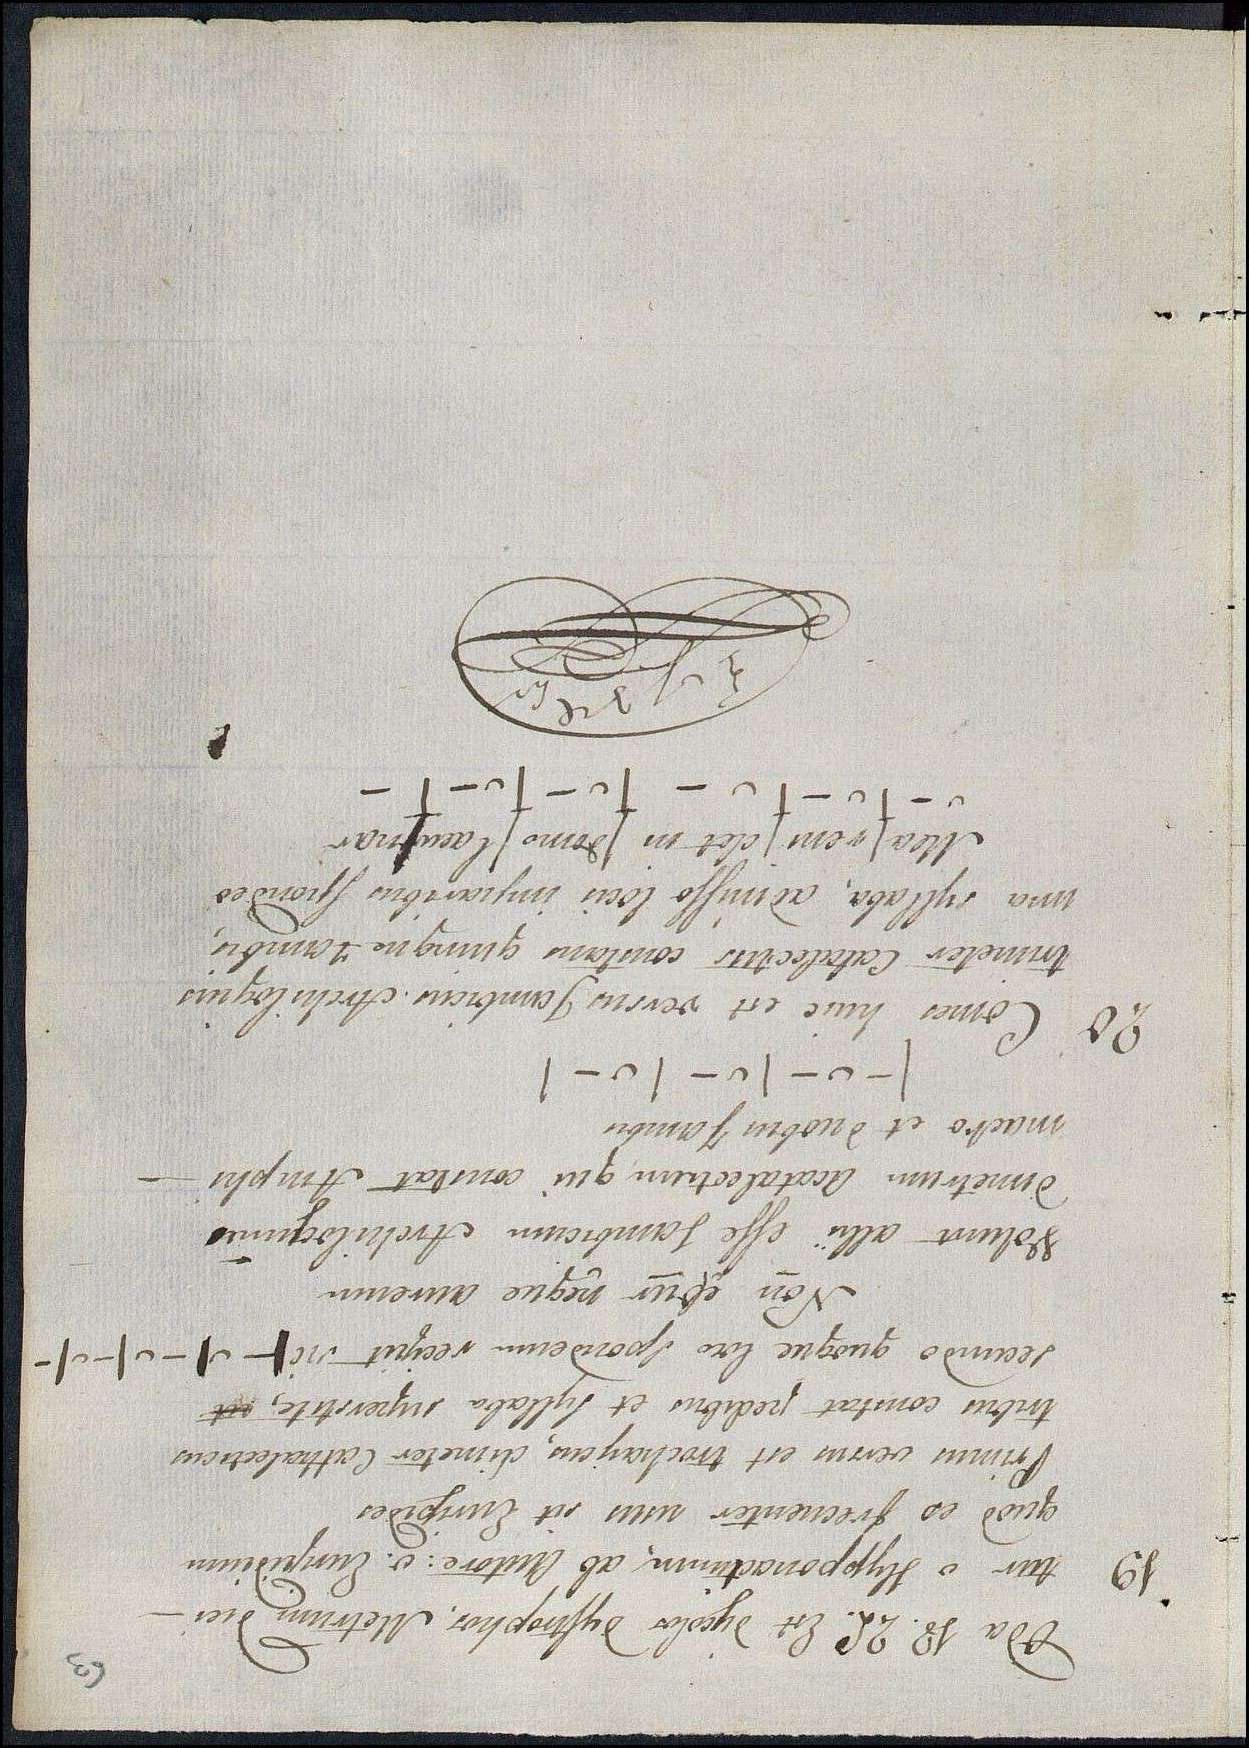 63
Oda 18. 2L. Est dycolos dystrophos. Metrum dici —
19 tur v Hypponactium, ab Autore: v. Euripidium
quod eo frecuenter usus sit Euripides
Primus versus est trochaycus, dimeter Cathalecticus
tribus constat pedibus et syllaba superstite, est
secundo quoque loco spondeum recipit sic
Non ebur neque aureum
Volunt alii esse Jambicum Archiloquium
dimetrum Acatalectum, qui constat Amphi —
macro et duobus Jambis
| – ᴗ – | ᴗ – | ᴗ – |
20 Comes huic est versus Jambicus Archiloquius
trimeter Catalectus constans quinque Iambis,
una syllaba, admisso locis imparibus spondeo
Mea | reni | det in | domo | lacu | nar
ᴗ – | ᴗ – | ᴗ – | ᴗ – | ᴗ – | –